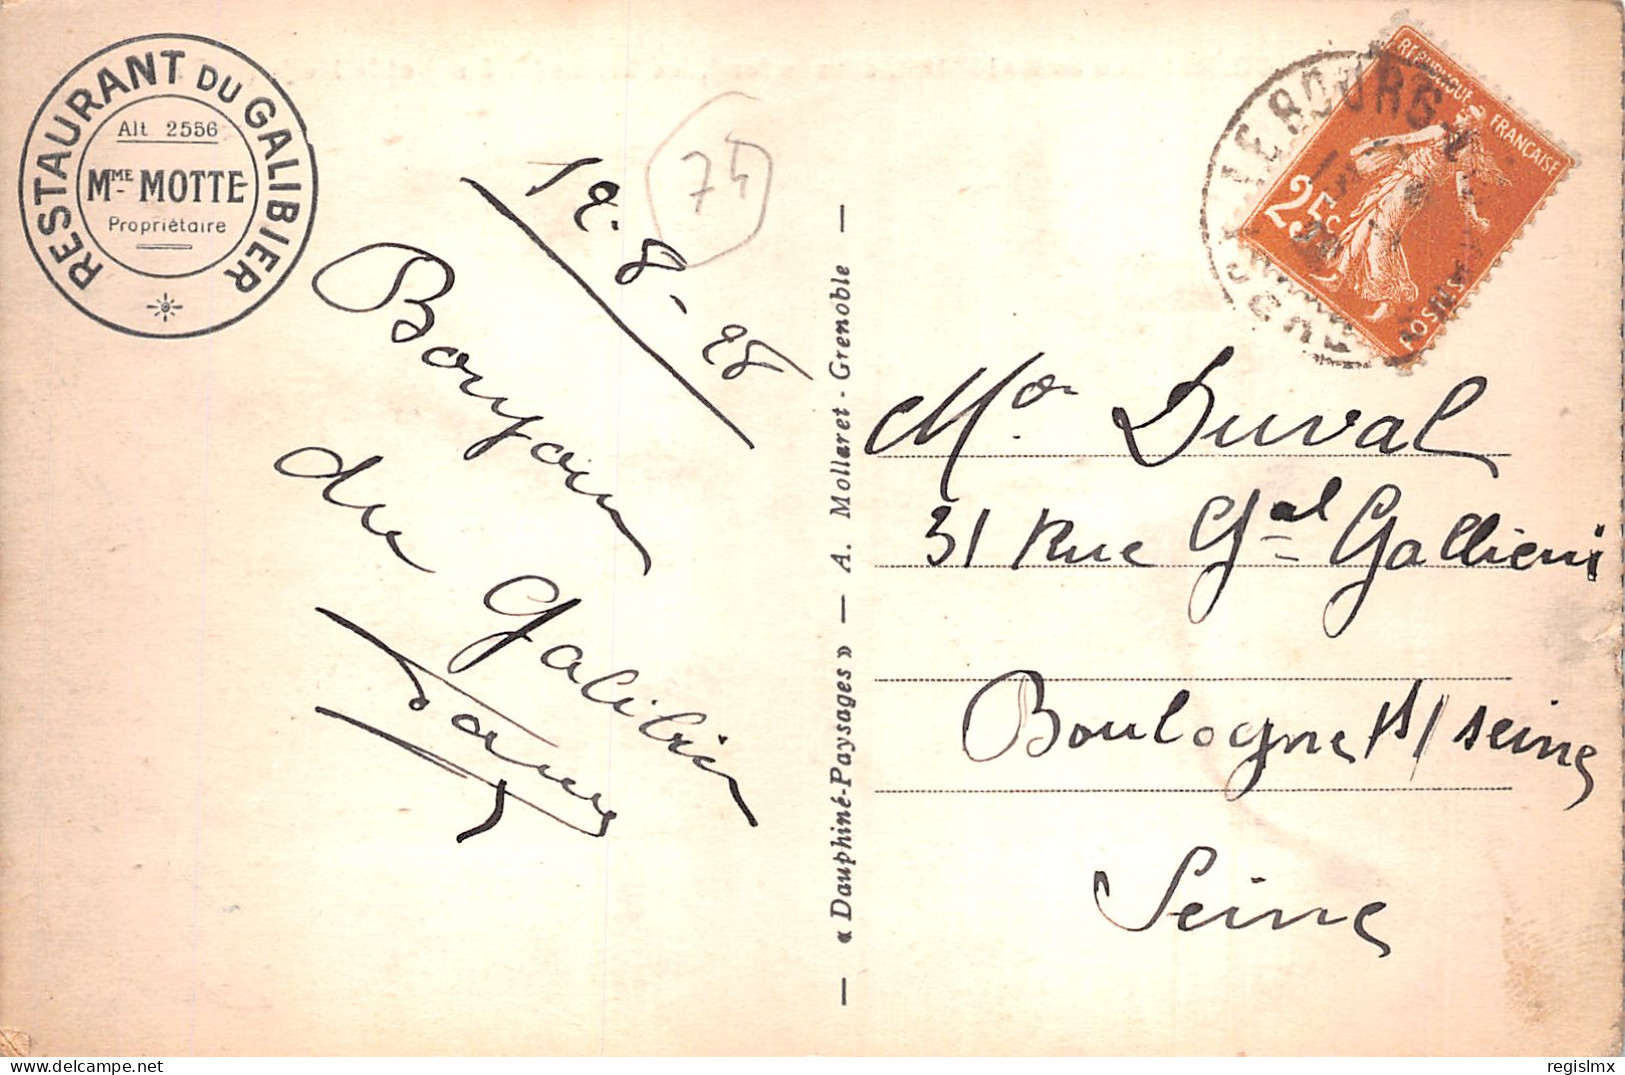 RESTAURANT DU GALIBIER
Alt 2556
MME MOTTE
Propriétaire
74
12-8-28
Bonjour
du Galibier
« Dauphiné-Paysages » — A. Mollaret - Grenoble
REPUBLIQUE FRANCAISE
25c
LE BOURG-D
Mr Duval
31 Rue Gal Gallieni
Boulogne s/ Seine
Seine
regislmx